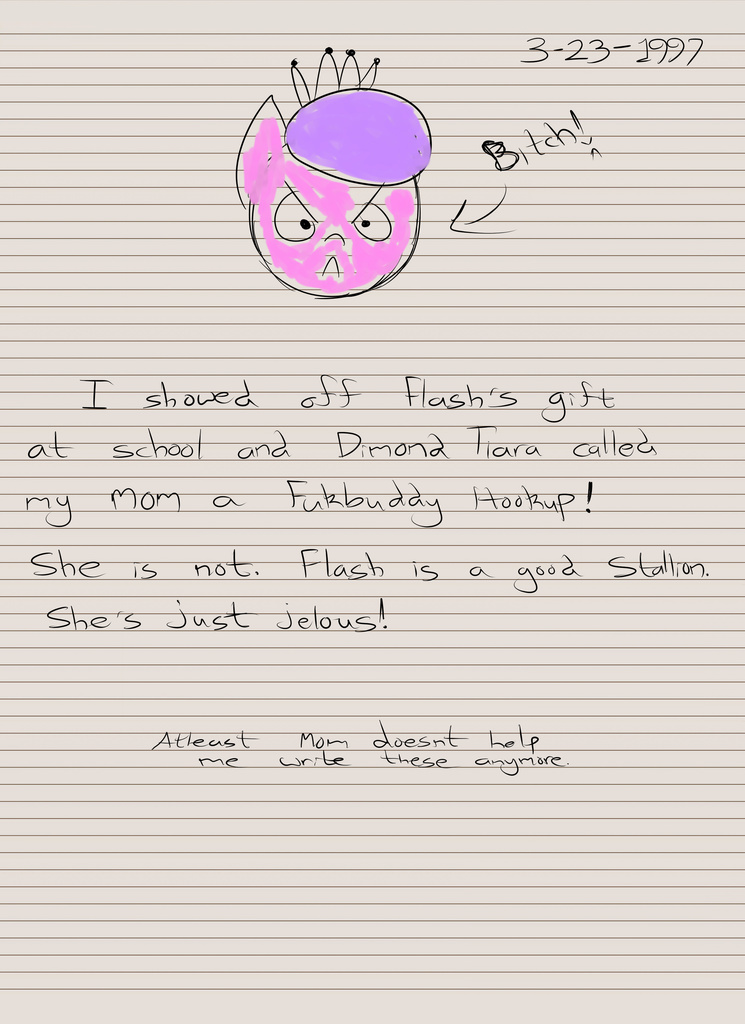 3-23-1997
Bitch!
I showed off Flash's gift
at school and Dimond Tiara called
my Mom a Fukbuddy Hookup!
She is not. Flash is a good Stallion.
She's just jelous!
Atleast Mom doesnt help
me write these anymore.